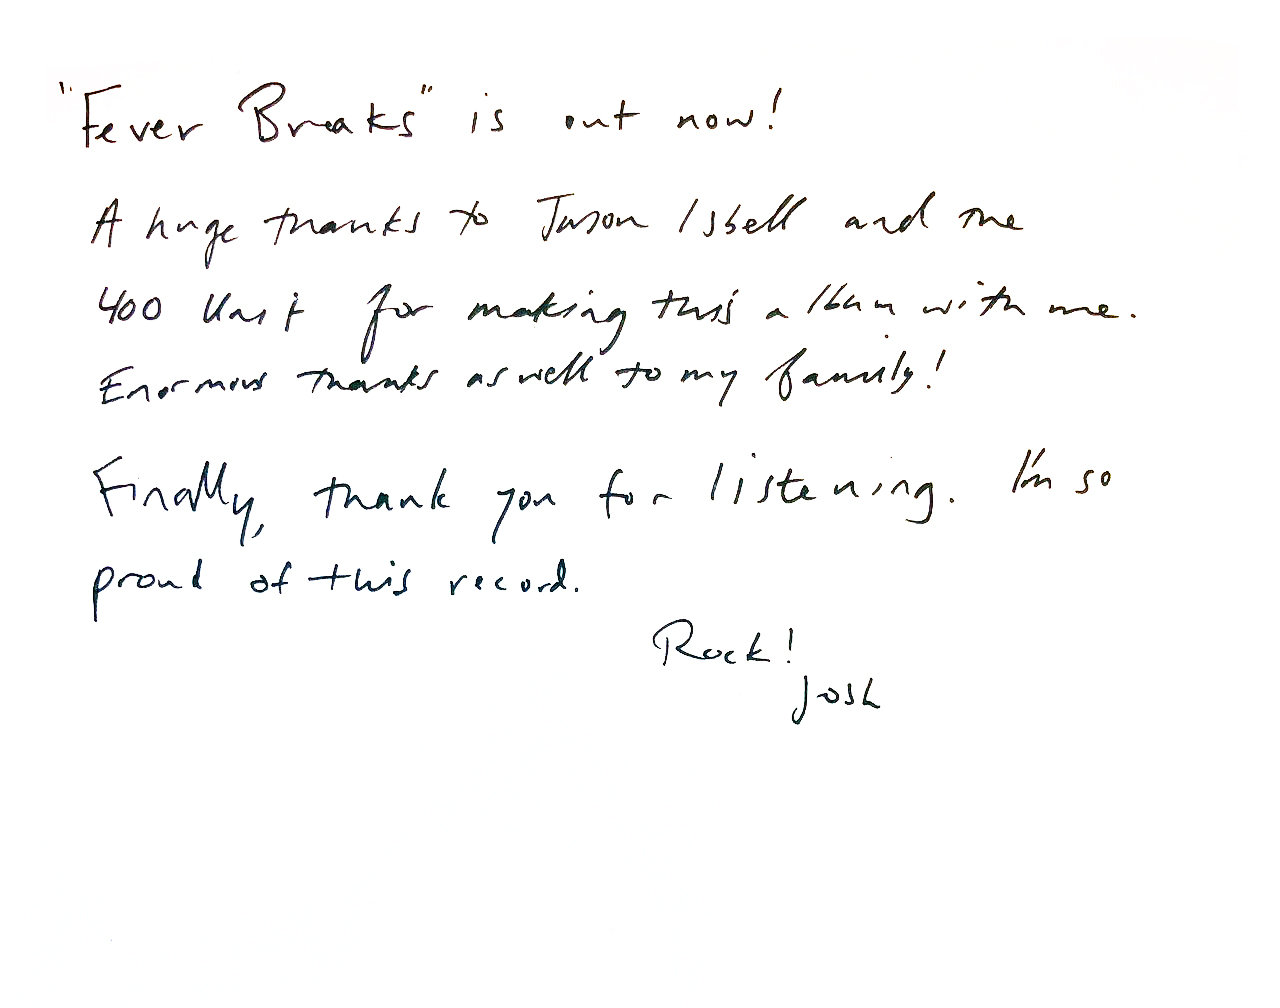 "Fever Breaks" is out now!
A huge thanks to Jason Isbell and the
400 Unit for making this album with me.
Enormous thanks as well to my family!
Finally, thank you for listening. I'm so
proud of this record.
Rock!
Josh